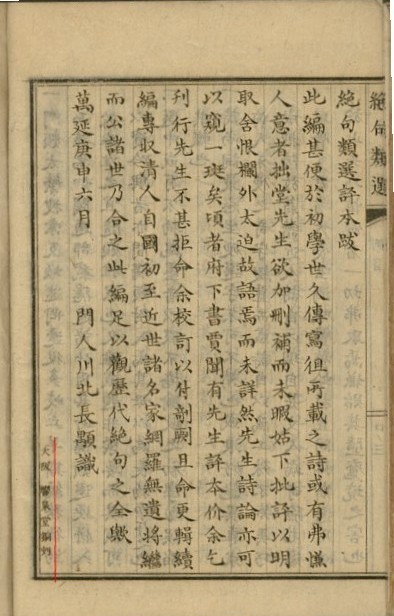 絶句類選
絶句類選評本跋
此編甚便於初學世久傳寫徂所載之詩或有弗慊
人意者拙堂先生欲加刪補而未暇姑下批評以明
取舍恨欄外太迫故語焉而未詳然先生詩論亦可
以窺一斑矣頃者府下書賈聞有先生評本价余乞
刊行先生不甚拒命余校訂以付剞劂且命更輯續
編專収清人自國初至近世諸名家網羅無遺將繼
而公諸世乃合之此編足以觀歷代絶句之全
萬延庚申六月
門人川北長顒識